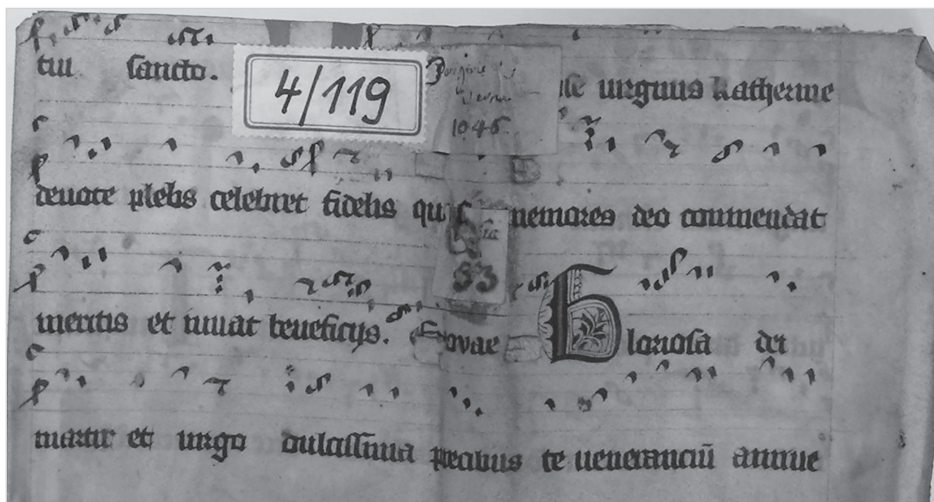 tui sancto.
4/119
1046
ste virginis katherine
devote plebs celebret fidelis qu memores deo commendat
83
meritis et iuuat beneficijs. Evovae Gloriosa dei
martir et virgo dulcissima precibus te veneranciū annue